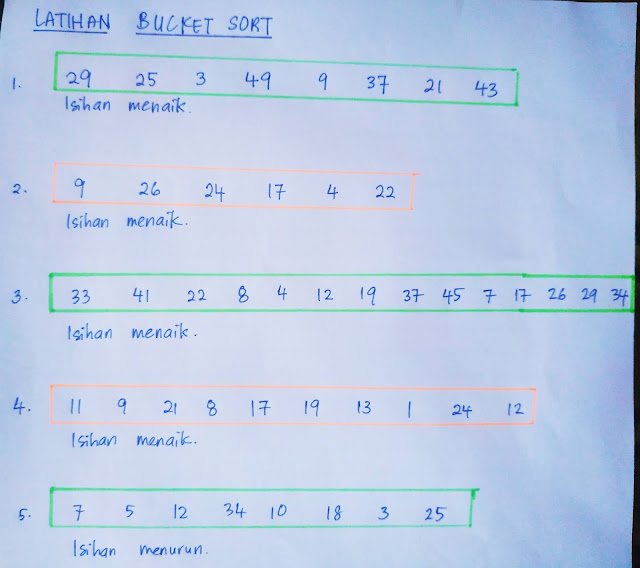 LATIHAN BUCKET SORT
1. 29 25 3 49 9 37 21 43
Isihan menaik.
2. 9 26 24 17 4 22
Isihan menaik.
3. 33 41 22 8 4 12 19 37 45 7 17 26 29 34
Isihan menaik.
4. 11 9 21 8 17 19 13 1 24 12
Isihan menaik.
5. 7 5 12 34 10 18 3 25
Isihan menurun.